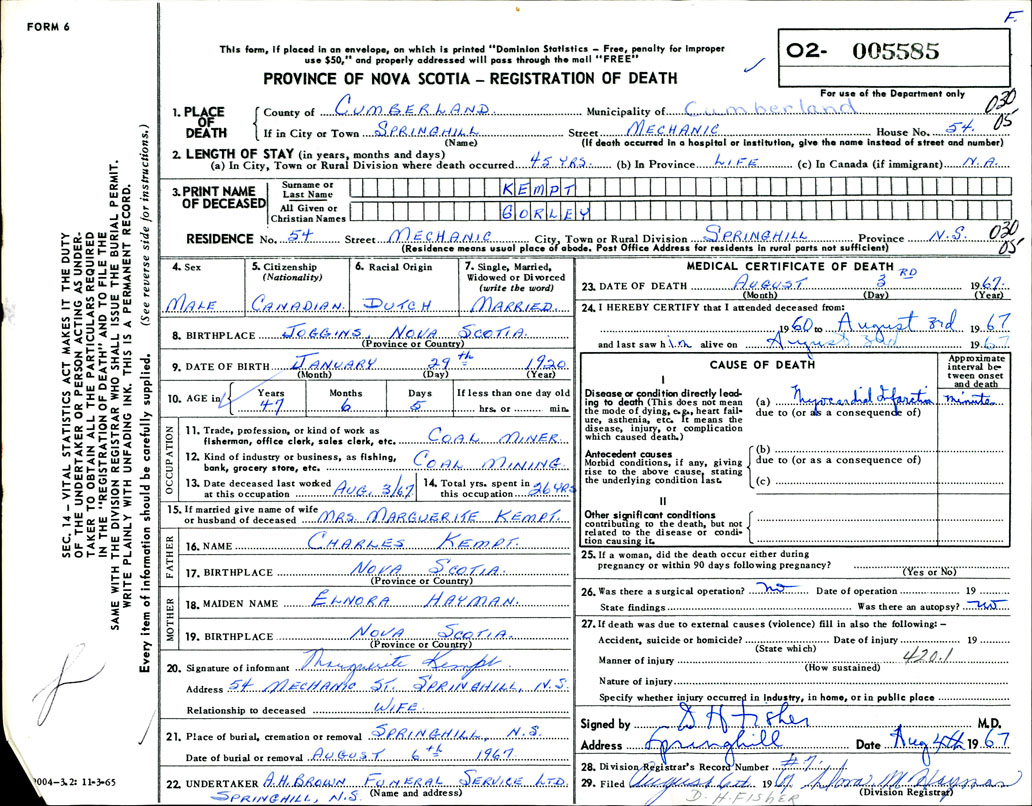 F.
FORM 6
This form, if placed in an envelope, on which is printed "Dominion Statistics – Free, penalty for improper
use $50," and properly addressed will pass through the mail "FREE"
O2- 005585
PROVINCE OF NOVA SCOTIA – REGISTRATION OF DEATH
For use of the Department only
030
05
1. PLACE OF DEATH County of CUMBERLAND. Municipality of Cumberland
If in City or Town SPRINGHILL Street MECHANIC House No. 54.
(Name) (If death occurred in a hospital or institution, give the name instead of street and number)
2. LENGTH OF STAY (in years, months and days)
(a) In City, Town or Rural Division where death occurred. 45 YRS. (b) In Province LIFE (c) In Canada (if immigrant) N.A.
3. PRINT NAME OF DECEASED Surname or Last Name KEMPT
All Given or Christian Names GORLEY
RESIDENCE No. 54 Street MECHANIC City, Town or Rural Division SPRINGHILL Province N.S. 030
05
(Residence means usual place of abode. Post Office Address for residents in rural parts not sufficient)
4. Sex MALE
5. Citizenship (Nationality) CANADIAN.
6. Racial Origin DUTCH
7. Single, Married, Widowed or Divorced (write the word) MARRIED.
8. BIRTHPLACE JOGGINS, NOVA SCOTIA.
(Province or Country)
9. DATE OF BIRTH JANUARY 29th 1920
(Month) (Day) (Year)
10. AGE in Years Months Days If less than one day old
47 6 5 hrs. or min.
OCCUPATION
11. Trade, profession, or kind of work as
fisherman, office clerk, sales clerk, etc. COAL MINER
12. Kind of industry or business, as fishing,
bank, grocery store, etc. COAL MINING.
13. Date deceased last worked
at this occupation AUG. 3/67
14. Total yrs. spent in
this occupation 26 YRS
15. If married give name of wife
or husband of deceased MRS. MARGUERITE KEMPT.
FATHER
16. NAME CHARLES KEMPT.
17. BIRTHPLACE NOVA SCOTIA.
(Province or Country)
MOTHER
18. MAIDEN NAME ELNORA HAYMAN.
19. BIRTHPLACE NOVA SCOTIA.
(Province or Country)
20. Signature of informant Marguerite Kempt
Address 54 MECHANIC ST. SPRINGHILL, N.S.
Relationship to deceased WIFE.
21. Place of burial, cremation or removal SPRINGHILL, N.S.
Date of burial or removal AUGUST 6th 1967
22. UNDERTAKER A.H. BROWN FUNERAL SERVICE LTD.
SPRINGHILL, N.S. (Name and address)
MEDICAL CERTIFICATE OF DEATH
23. DATE OF DEATH AUGUST 3RD 1967.
(Month) (Day) (Year)
24. I HEREBY CERTIFY that I attended deceased from:
1960 to August 3rd 1967
and last saw him alive on August 3rd 1967
CAUSE OF DEATH
Approximate interval between onset and death
I
Disease or condition directly leading to death (This does not mean
the mode of dying, e.g., heart failure, asthenia, etc. It means the
disease, injury, or complication
which caused death.)
(a) Myocardial Infarction minutes
due to (or as a consequence of)
Antecedent causes
Morbid conditions, if any, giving
rise to the above cause, stating
the underlying condition last.
(b)
due to (or as a consequence of)
(c)
II
Other significant conditions
contributing to the death, but not
related to the disease or condition causing it.
25. If a woman, did the death occur either during
pregnancy or within 90 days following pregnancy?
(Yes or No)
26. Was there a surgical operation? no Date of operation 19
State findings Was there an autopsy? no
27. If death was due to external causes (violence) fill in also the following: –
Accident, suicide or homicide? Date of injury 19
(State which)
Manner of injury 420.1
(How sustained)
Nature of injury
Specify whether injury occurred in industry, in home, or in public place
Signed by D H Fisher M.D.
Address Springhill Date Aug 4th 1967
28. Division Registrar's Record Number #7.
29. Filed August 1967
(Division Registrar)
D.H. FISHER
SEC. 14 – VITAL STATISTICS ACT MAKES IT THE DUTY
OF THE UNDERTAKER OR PERSON ACTING AS UNDER-
TAKER TO OBTAIN ALL THE PARTICULARS REQUIRED
IN THE "REGISTRATION OF DEATH" AND TO FILE THE
SAME WITH THE DIVISION REGISTRAR WHO SHALL ISSUE THE BURIAL PERMIT.
WRITE PLAINLY WITH UNFADING INK. THIS IS A PERMANENT RECORD.
Every item of information should be carefully supplied. (See reverse side for instructions.)
0004-3.2: 11-3-65